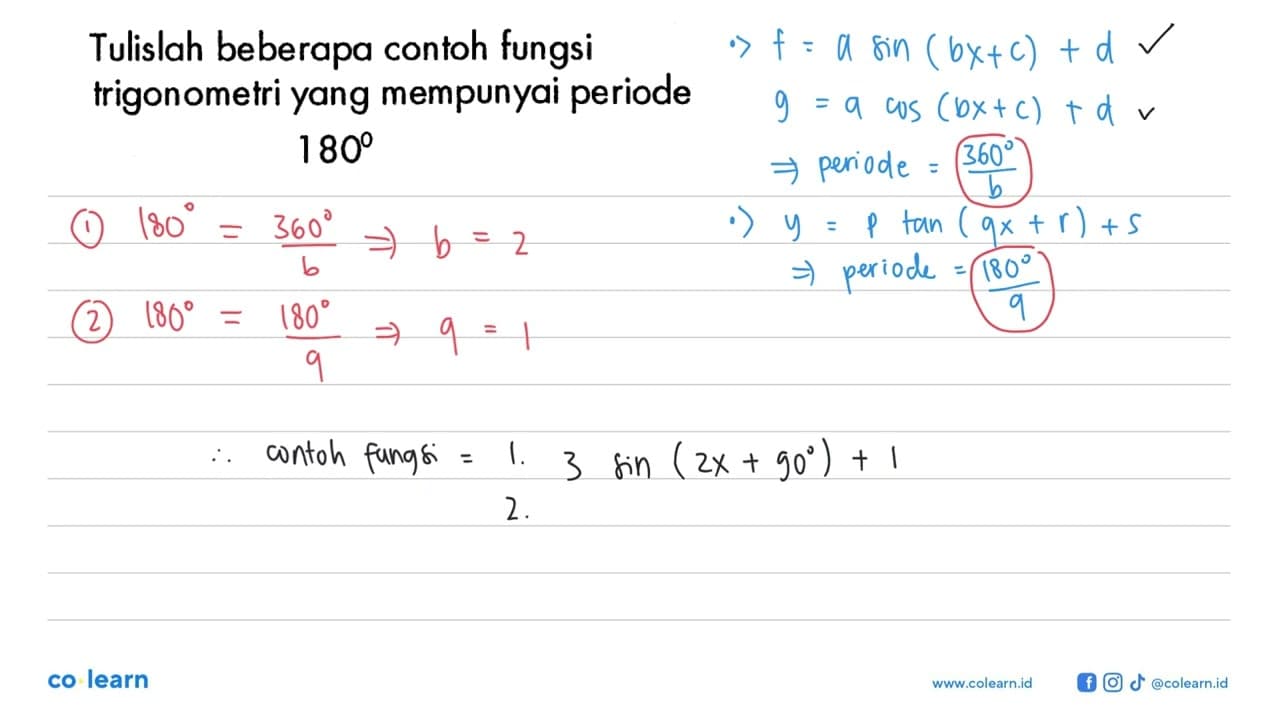 Tulislah beberapa contoh fungsi
trigonometri yang mempunyai periode
180⁰
•> f = a sin (bx+c) + d ✓
g = a cos (bx+c) + d ✓
⇒ periode = 360°/b
•) y = p tan (qx + r) + s
⇒ periode = 180°/q
① 180° = 360°/b ⇒ b = 2
② 180° = 180°/q ⇒ q = 1
∴ contoh fungsi = 1. 3 sin (2x + 90°) + 1
2.
co learn
www.colearn.id
@colearn.id